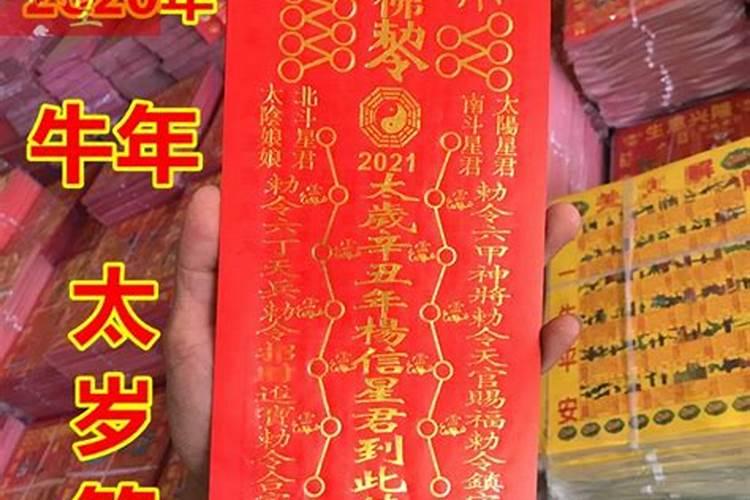 2020年
牛年
太岁符
佛勅令
太陰娘娘
北斗星君
南斗星君
太陽星君
2021
太歲辛丑年楊信星君到此
勅令六丁天兵勅令
進寶勅令合家
勅令六甲神將勅令天官賜福勅令鎮宅
生意興隆
一生平安